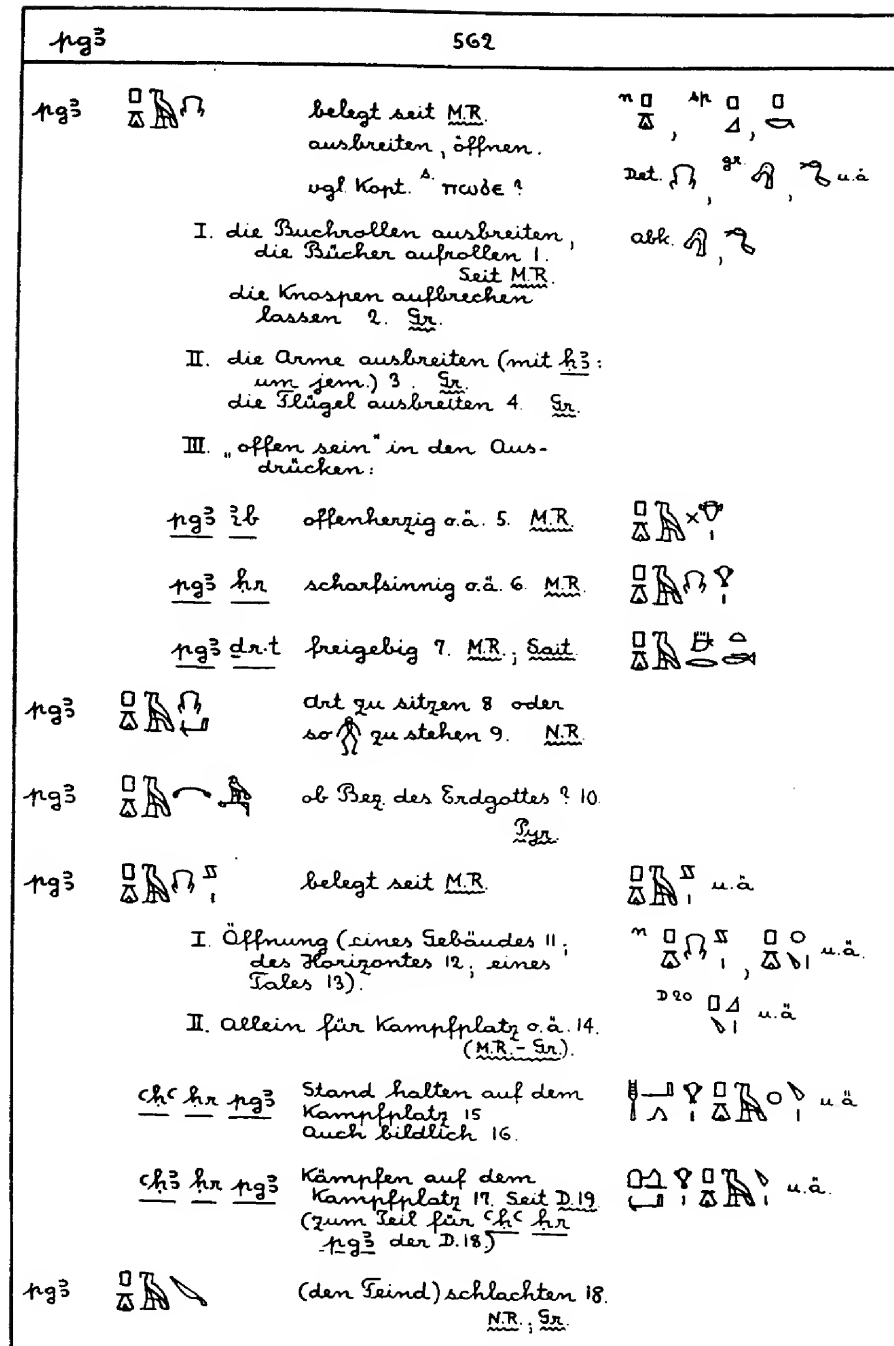 pgꜣ 562
pgꜣ belegt seit M.R. n , sp ,
ausbreiten, öffnen.
vgl. Kopt. S. πωϭε ? Det. , gr. , u.ä
I. die Buchrollen ausbreiten, abk. ,
die Bücher aufrollen 1.
Seit M.R.
die Knospen aufbrechen
lassen 2. Gr.
II. die Arme ausbreiten (mit ḥꜣ:
um jem.) 3. Gr.
die Flügel ausbreiten 4. Gr.
III. „offen sein" in den Aus-
drücken:
pgꜣ ꞽb offenherzig o.ä. 5. M.R.
pgꜣ ḥr scharfsinnig o.ä. 6. M.R.
pgꜣ ḏr·t freigebig 7. M.R.; Sait.
pgꜣ Art zu sitzen 8 oder
so zu stehen 9. N.R.
pgꜣ ob Bez. des Erdgottes? 10.
Pyr.
pgꜣ belegt seit M.R. u.ä
I. Öffnung (eines Gebäudes 11; n , u.ä.
des Horizontes 12; eines
Tales 13).
D 20 u.ä
II. Allein für Kampfplatz o.ä. 14.
(M.R. - Gr.).
ꜥḥꜥ ḥr pgꜣ Stand halten auf dem
Kampfplatz 15 u.ä
Auch bildlich 16.
ꜥḥꜣ ḥr pgꜣ Kämpfen auf dem
Kampfplatz 17. Seit D.19. u.ä.
(zum Teil für ꜥḥꜥ ḥr
pgꜣ der D.18.)
pgꜣ (den Feind) schlachten 18.
N.R.; Gr.